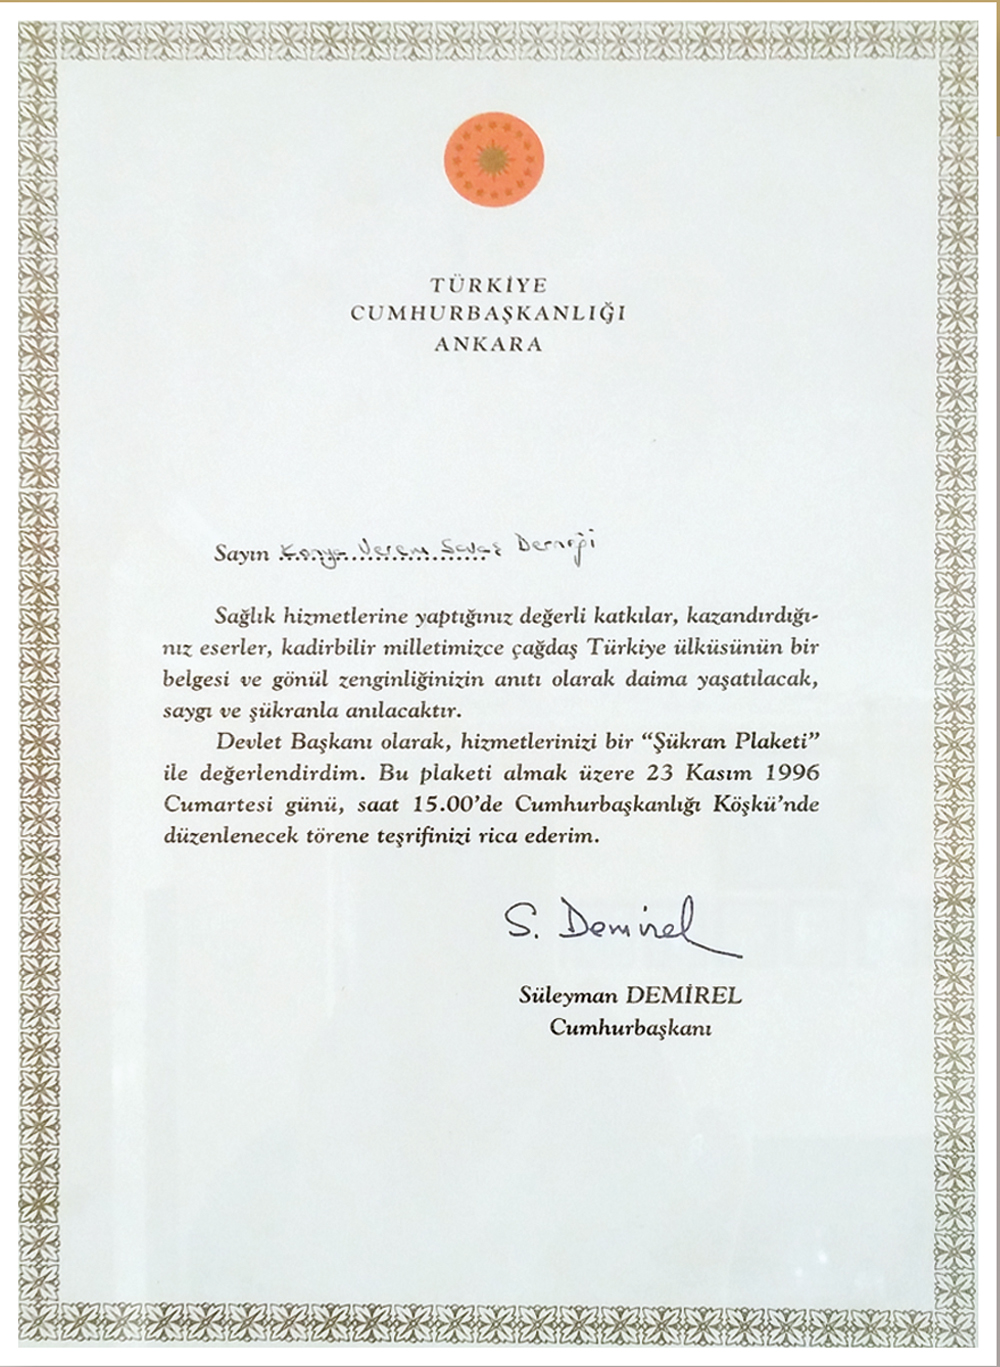 TÜRKİYE
CUMHURBAŞKANLIĞI
ANKARA
Sayın Konya Verem Savaş Derneği
Sağlık hizmetlerine yaptığınız değerli katkılar, kazandırdığı-
nız eserler, kadirbilir milletimizce çağdaş Türkiye ülküsünün bir
belgesi ve gönül zenginliğinizin anıtı olarak daima yaşatılacak,
saygı ve şükranla anılacaktır.
Devlet Başkanı olarak, hizmetlerinizi bir “Şükran Plaketi”
ile değerlendirdim. Bu plaketi almak üzere 23 Kasım 1996
Cumartesi günü, saat 15.00’de Cumhurbaşkanlığı Köşkü’nde
düzenlenecek törene teşrifinizi rica ederim.
S. Demirel
Süleyman DEMİREL
Cumhurbaşkanı